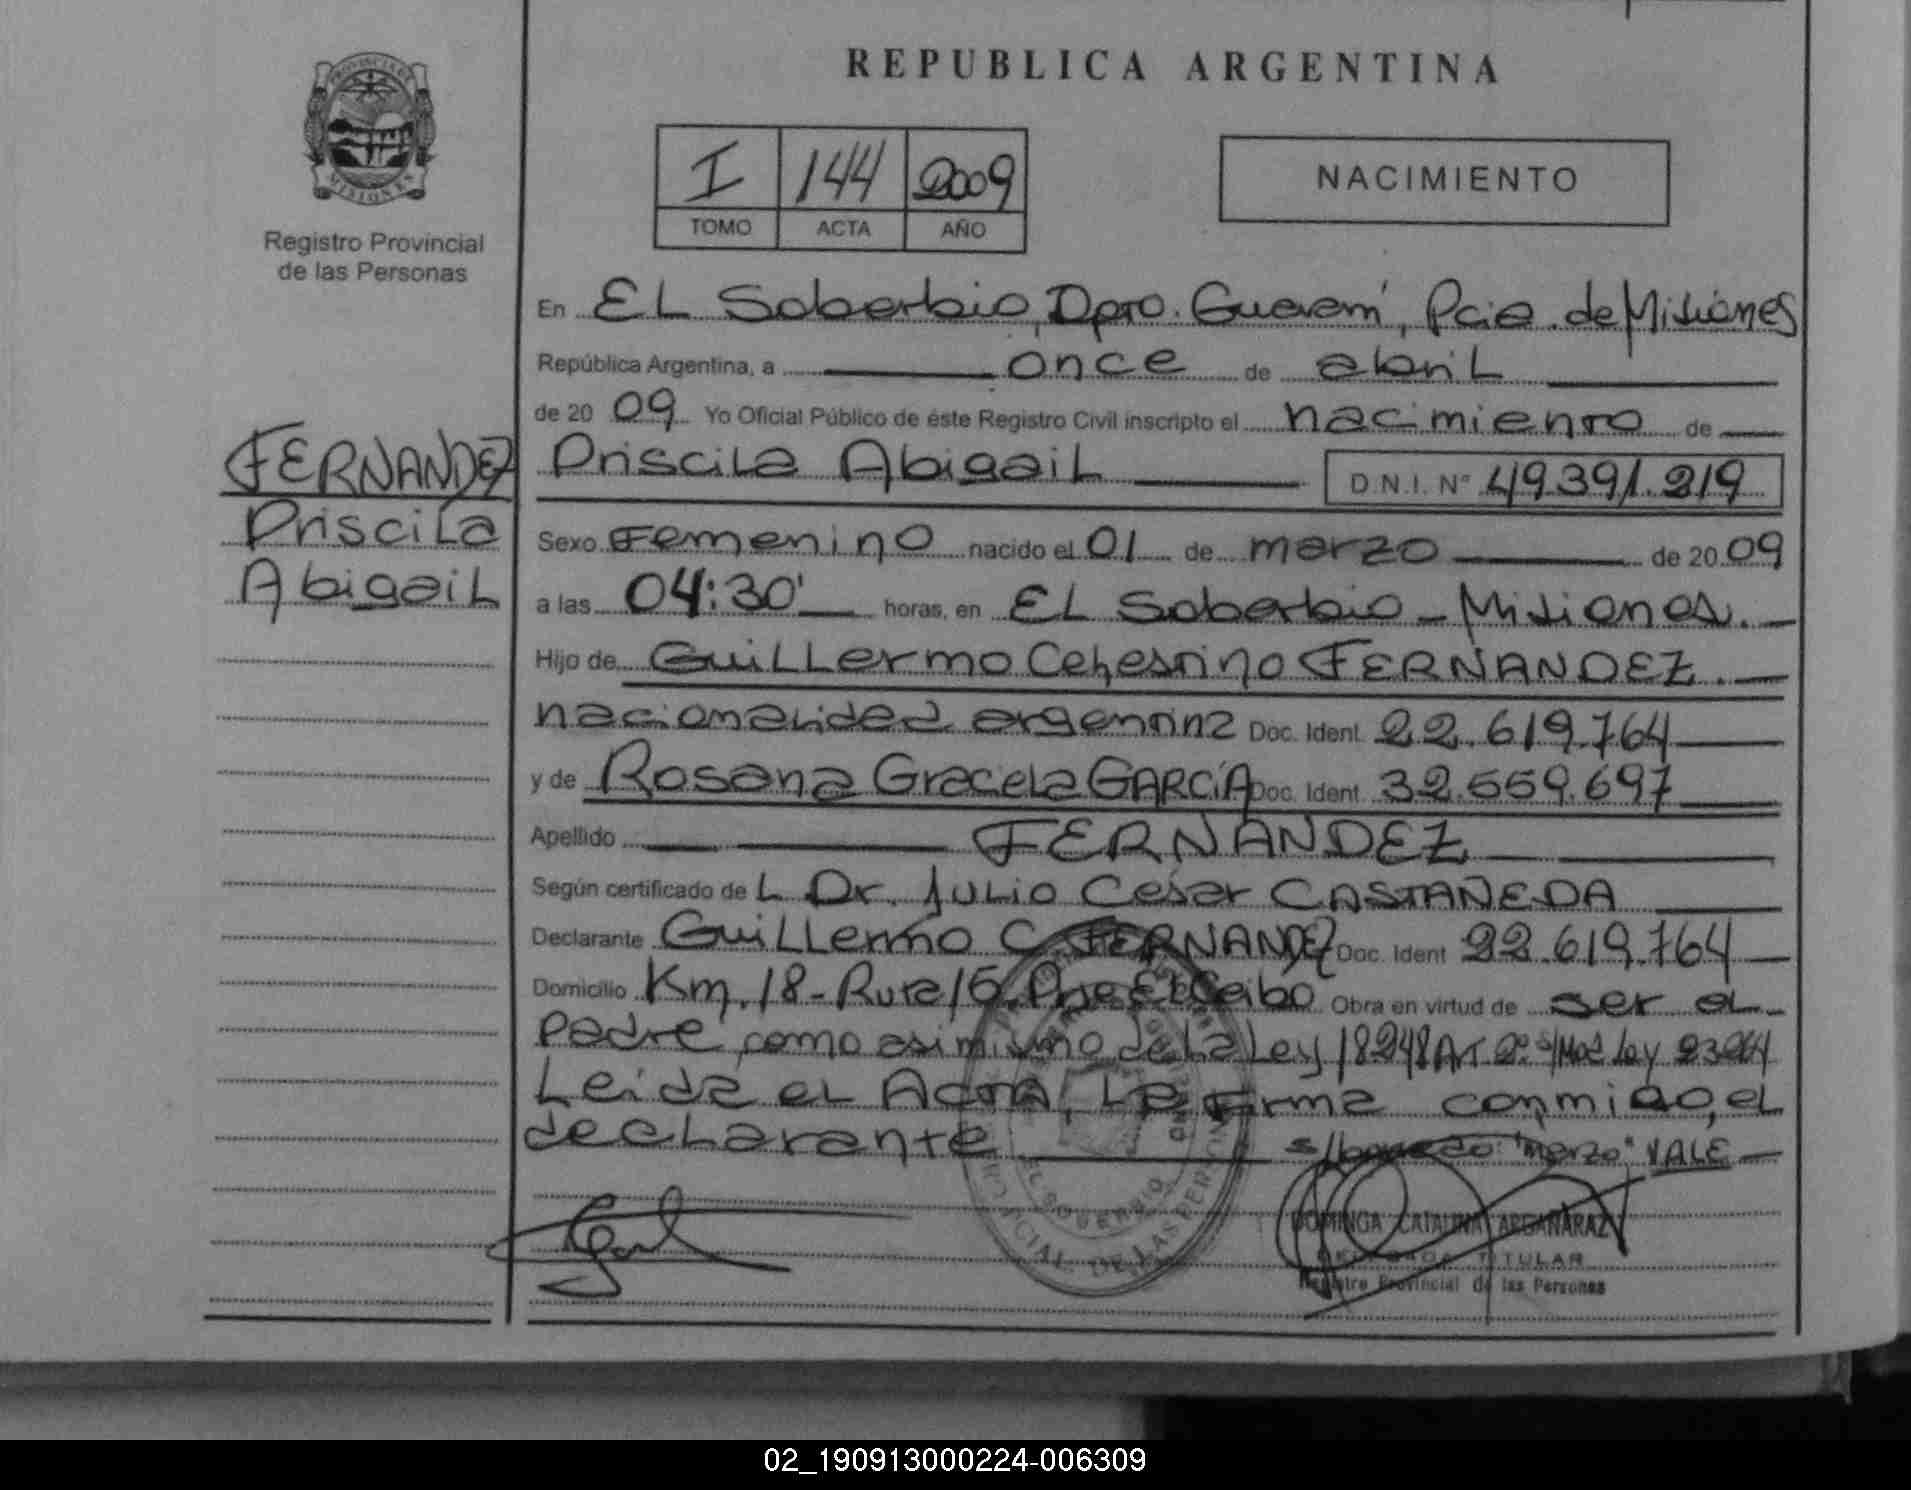 REPUBLICA ARGENTINA
PROVINCIA DE
MISIONES
Registro Provincial
de las Personas
I 144 2009
TOMO ACTA AÑO
NACIMIENTO
En EL Soberbio, Dpto. Guaraní, Pcia. de Misiones
República Argentina, a once de abril
de 20 09 Yo Oficial Público de éste Registro Civil inscripto el nacimiento de
FERNANDEZ
Priscila
Abigail
Priscila Abigail D.N.I. N° 49391.219
Sexo Femenino nacido el 01 de marzo de 20 09
a las 04:30' horas, en EL Soberbio - Misiones.
Hijo de Guillermo Celestino FERNANDEZ.
nacionalidad argentina Doc. Ident. 22.619.764
y de Rosana Graciela GARCÍA Doc. Ident. 32.559.697
Apellido FERNANDEZ
Según certificado de L Dr. Julio César CASTAÑEDA
Declarante Guillermo C. FERNANDEZ Doc. Ident 22.619.764
Domicilio Km. 18 - Ruta 15. Pje El Ceibo Obra en virtud de ser el
padre, como asimismo de la Ley 18248 Art 2° Ley 23264
Leida el Acta, La firma conmigo, el
declarante s/borrado: "marzo" VALE
EL SOBERBIO
PROVINCIAL DE LAS PERSONAS
DOMINGA CATALINA ARGAÑARAZ
DELEGADA TITULAR
Registro Provincial de las Personas
02_190913000224-006309